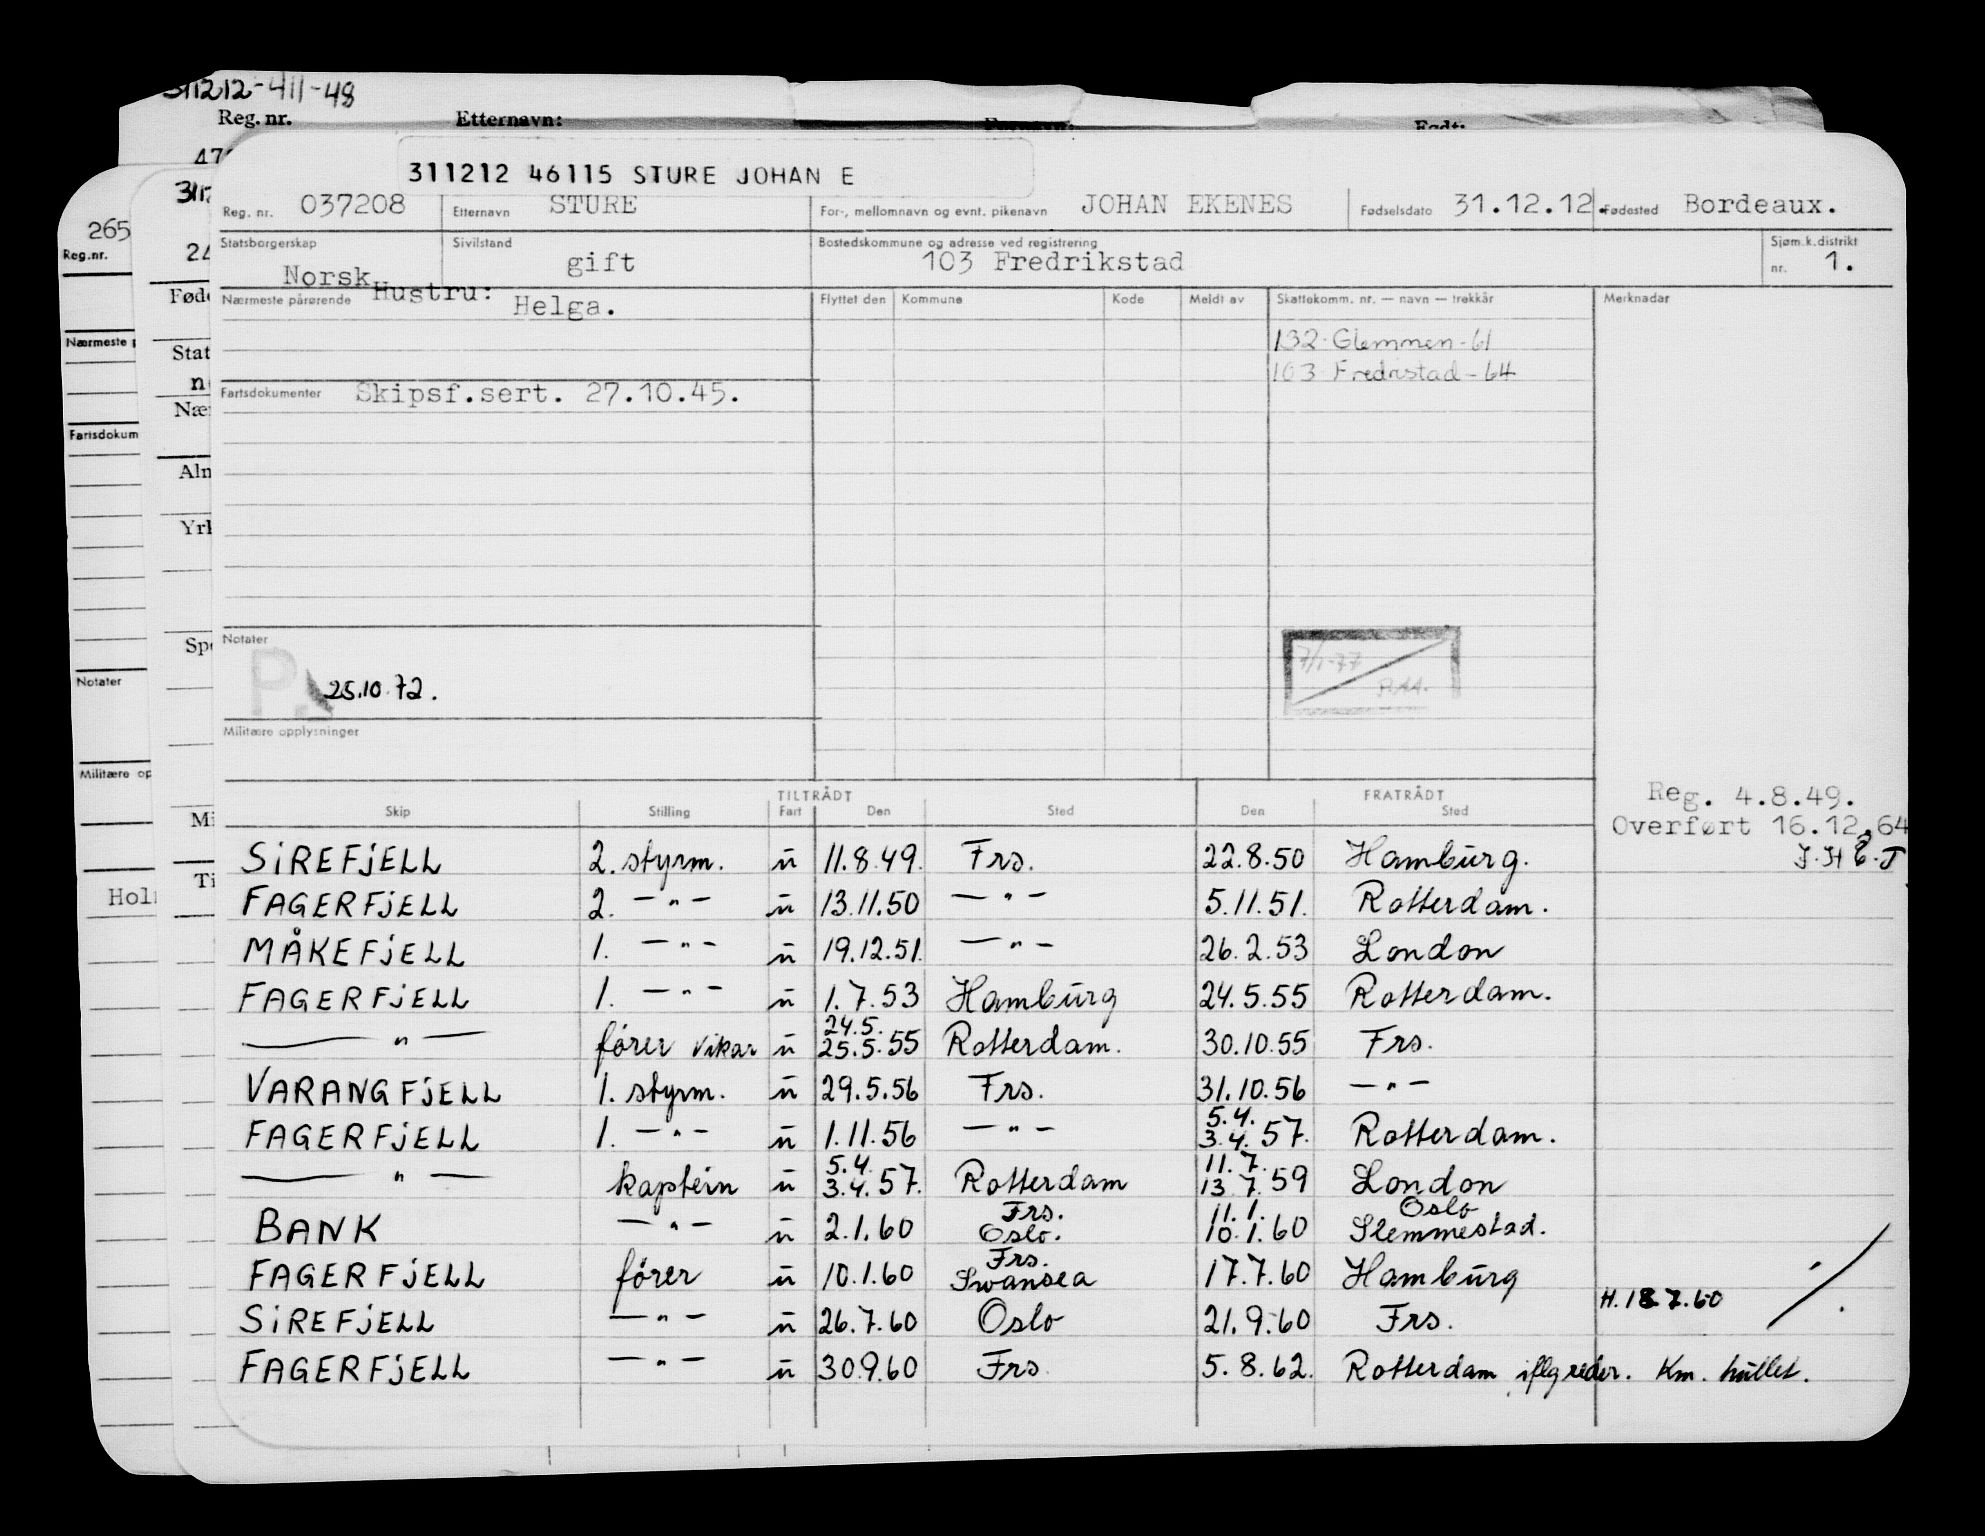 311212-411-48
Reg. nr. Etternavn: Født:
311212 46115 STURE JOHAN E
Reg. nr. 037208 Etternavn STURE For-, mellomnavn og evnt. pikenavn JOHAN EKENES Fødselsdato 31.12.12. Fødested Bordeaux.
Statsborgerskap Norsk Sivilstand gift Bostedskommune og adresse ved registrering 103 Fredrikstad Sjøm.k.distrikt nr. 1.
Nærmeste pårørende Hustru: Helga. Flyttet den Kommune Kode Meldt av Skattekomm. nr. — navn — trekkår Merknader
132 Glemmen - 61
103 Fredristad - 64
Fartsdokumenter Skipsf.sert. 27.10.45.
Notater
P. 25.10.72.
7/1-77
Militære opplysninger
Reg. 4.8.49.
Overført 16.12.64
TILTRÅDT FRATRÅDT
Skip Stilling Fart Den Sted Den Sted
SiREFjELL 2. styrm. ū 11.8.49. Frs. 22.8.50 Hamburg.
FAGERFjELL 2. —"— ū 13.11.50 —"— 5.11.51. Rotterdam.
MÅKEFjELL 1. —"— ū 19.12.51. —"— 26.2.53 London
FAGERFjELL 1. —"— ū 1.7.53 Hamburg 24.5.55 Rotterdam.
24.5.
—"— fører vikar ū 25.5.55 Rotterdam. 30.10.55 Frs.
VARANGFjELL 1. styrm. ū 29.5.56 Frs. 31.10.56 —"—
5.4.
FAGERFjELL 1. —"— ū 1.11.56 —"— 3.4.57. Rotterdam.
5.4. 11.7.
—"— kaptein ū 3.4.57. Rotterdam 13.7.59 London
Frs. 11.1. Oslo
BANK —"— ū 2.1.60 Oslo. 10.1.60 Slemmestad.
Frs.
FAGERFjELL fører ū 10.1.60 Swansea 17.7.60 Hamburg
H. 18.7.60
SiREFjELL —"— ū 26.7.60 Oslo 21.9.60 Frs.
FAGERFjELL —"— ū 30.9.60 Frs. 5.8.62. Rotterdam iflg reder. Km. hullet.
265
Reg.nr.
Fartsdokum
Notater